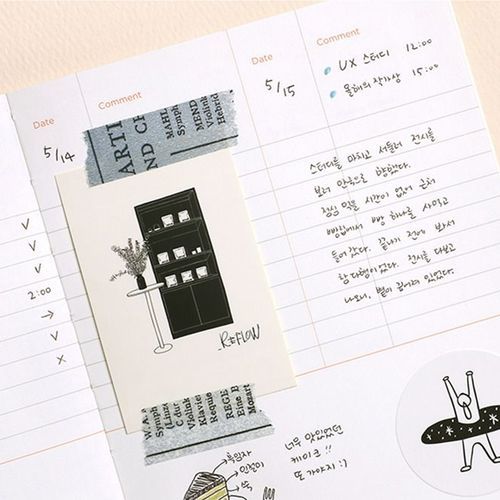 Date
Comment
5/14
ARTI
ND CH
MARI
Symph
Violin
MEND
Hebrid
REFLOW
✓
✓
✓
2:00
→
✓
×
W. A.
Symph
(Linz
C dur
Violink
Klavier
Requie
REGE
Eine B
Mozart
Date
Comment
5/15
UX 스터디 12:00
올해의 작가상 15:00
스터디를 마치고 서둘러 전시를
보러 안국으로 향했다.
점심 먹을 시간이 없어 근처
빵집에서 빵 하나를 사먹고
들어갔다. 끝나기 전에 봐서
참 다행이었다. 전시를 다보고
나오니, 볕이 길어져 있었다.
흑임자
인절미
쑥
너무 맛있었던
케이크!!
또 가야지 :)